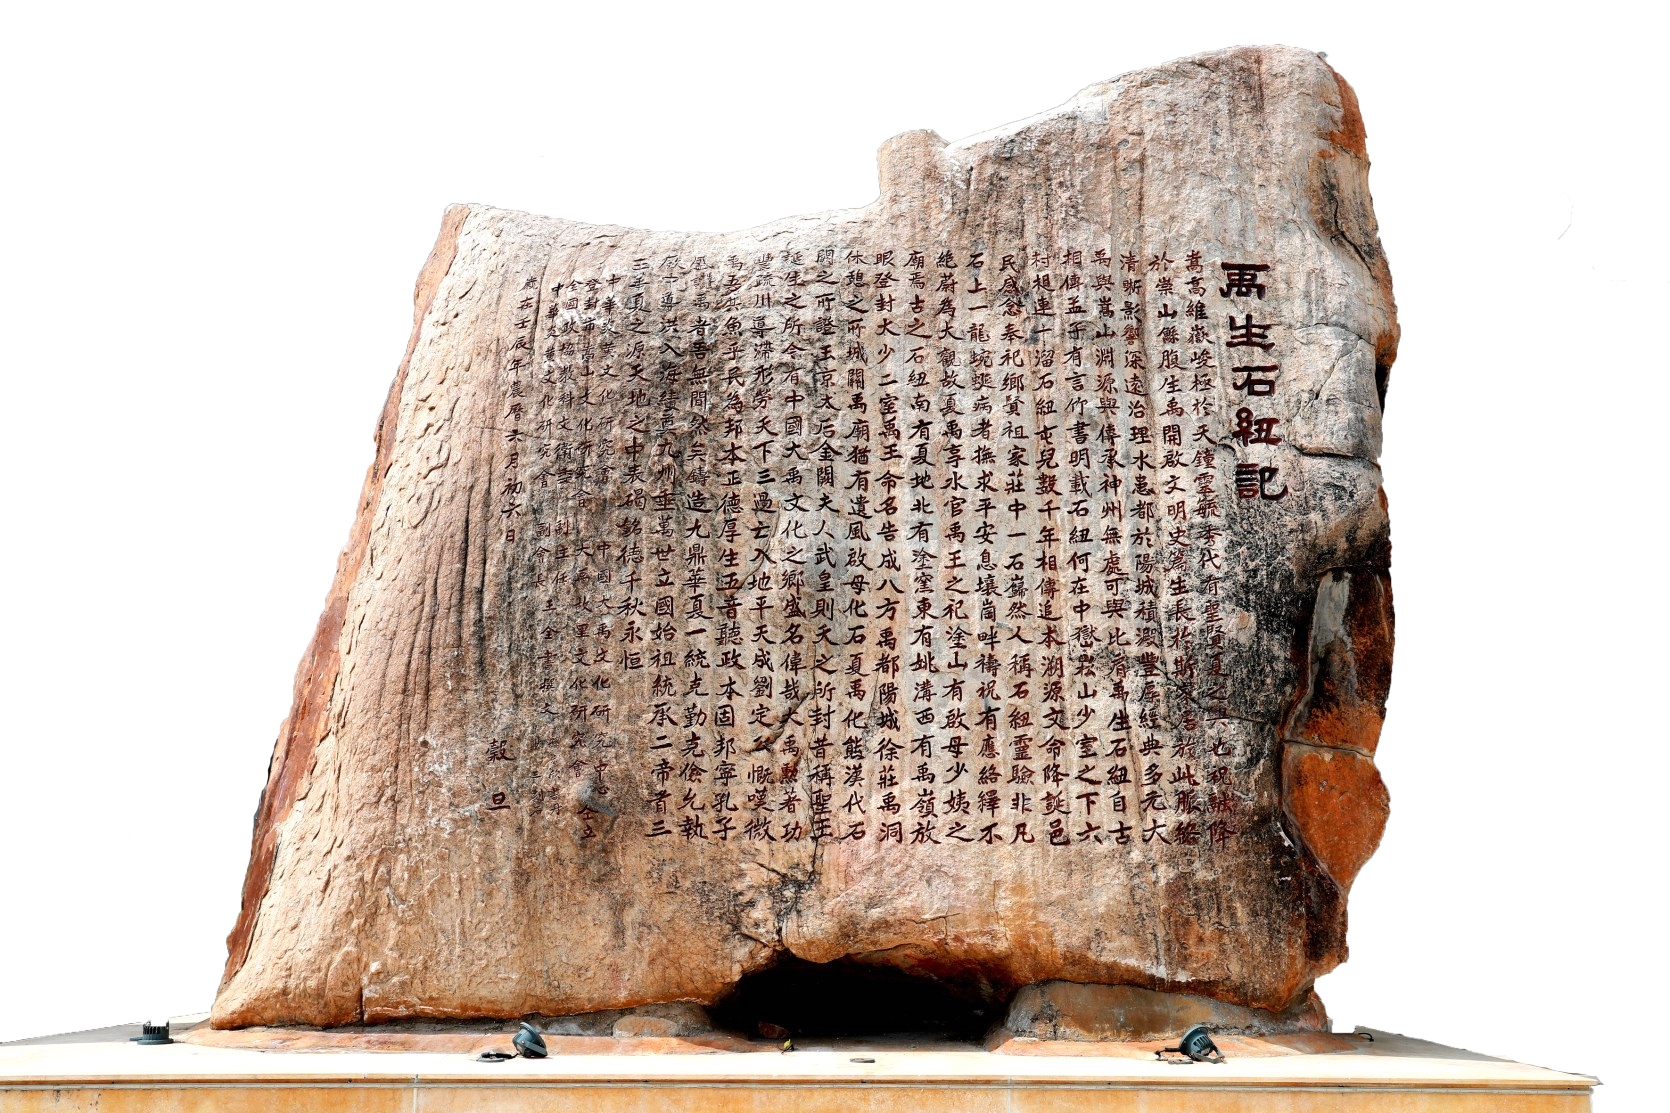 禹生石紐記
嵩高維嶽峻極於天鐘靈毓秀代有聖賢夏之興也祝融降
於崇山鯀腹生禹開啟文明史篇生長於斯於此脈絡
清晰影響深遠治理水患都於陽城積澱豐厚經典多元大
禹與嵩山淵源與傳承神州無處可與比肩禹生石紐自古
相傳孟子有言竹書明載石紐何在中嶽崧山少室之下六
村相連一溜石紐屯兒數千年相傳追本溯源文命降誕邑
民感念奉祀鄉賢祖家莊中一石巋然人稱石紐靈驗非凡
石上一龍蜿蜒病者撫求平安息壤崗畔禱祝有應絡繹不
絶蔚為大觀故夏禹享水官禹王之祀塗山有啟母少姨之
廟焉古之石紐南有夏地北有塗窪東有姚溝西有禹嶺放
眼登封大少二室禹王命名告成八方禹都陽城徐莊禹洞
休憩之所城關禹廟猶有遺風啟母化石夏禹化熊漢代石
闕之所證王京太后金闕夫人武皇則天之所封昔稱聖王
誕生之所今有中國大禹文化之鄉盛名偉哉大禹勲著功
豐疏川導滯形勞天下三過亡入地平天成劉定公慨嘆微
禹吾其魚乎民為邦本正德厚生五音聽政本固邦寧孔子
禹者吾無間然矣鑄造九鼎華夏一統克勤克儉允執
厥中導洪入海績奠九州垂萬世立國始祖統承二帝首三
王羊頁之源天地之中表碣銘德千秋永恒
中華炎黃文化研究會 中國大禹文化研究中心
登封市嵩山文化研究會 大禹故里文化研究會 仝立
全國政協教科文衛 副主任 王全書撰文
中華炎黃文化研究會 副會長
歲在壬辰年農曆六月初六日 穀旦